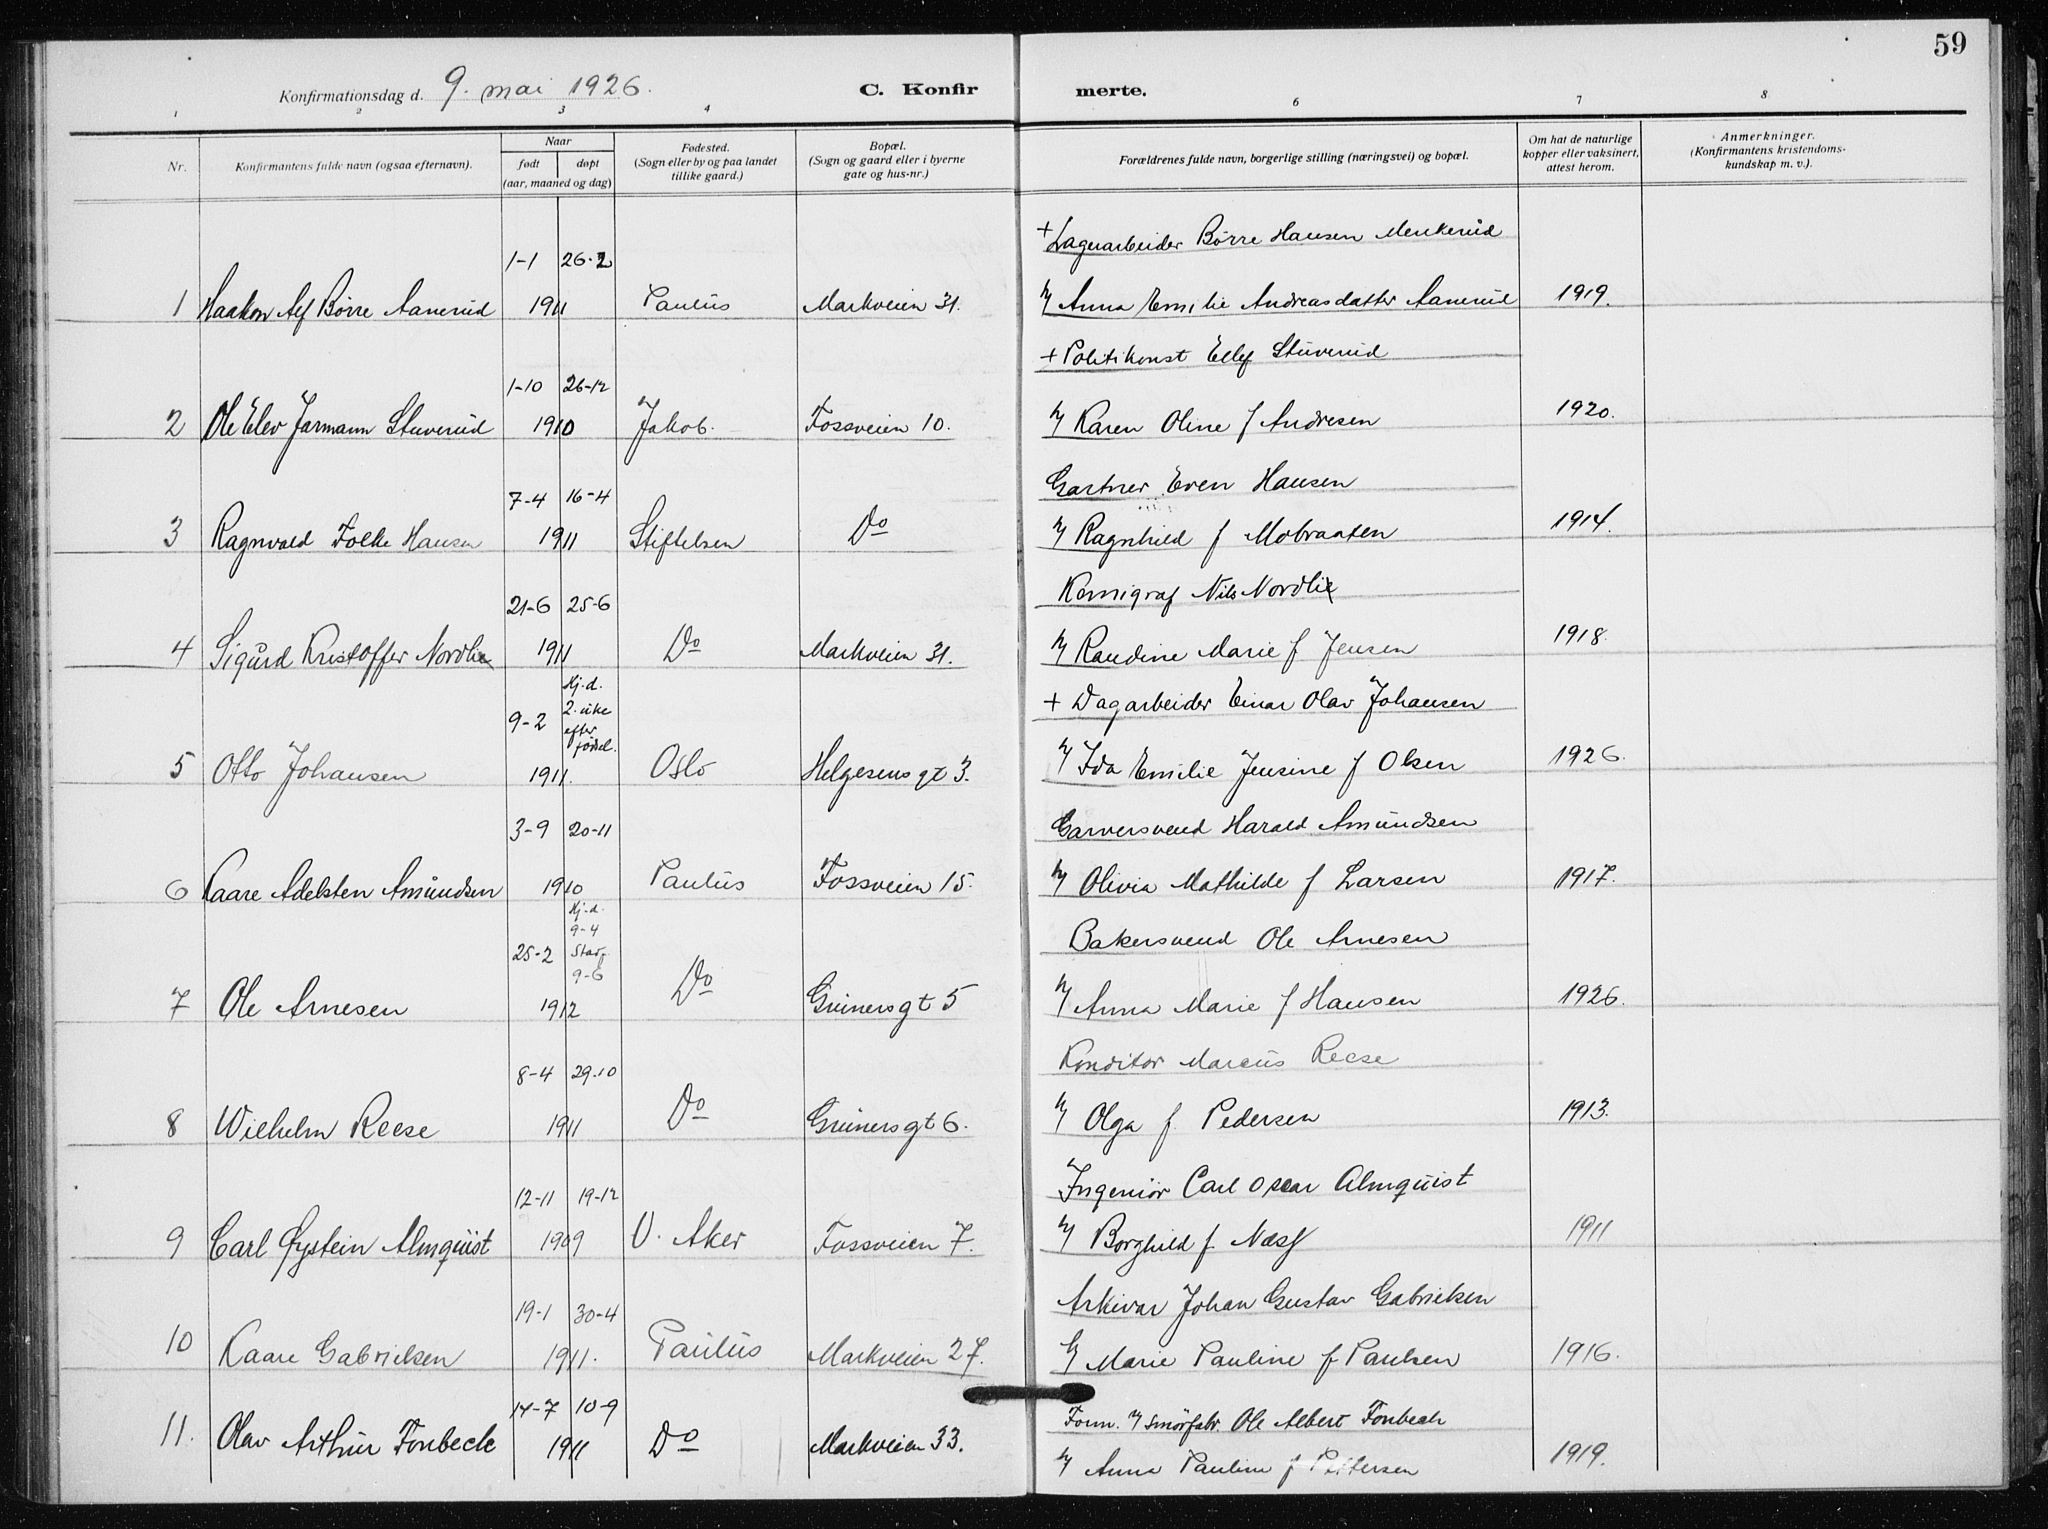 59
Konfirmationsdag d. 9. mai 1926. C. Konfirmerte.
1 2 3 4 6 7 8
Nr. Konfirmantens fulde navn (ogsaa efternavn). Naar født døpt (aar, maaned og dag) Fødested. (Sogn eller by og paa landet tillike gaard.) Bopæl. (Sogn og gaard eller i byerne gate og hus-nr.) Forældrenes fulde navn, borgerlige stilling (næringsvei) og bopæl. Om hat de naturlige kopper eller vaksinert, attest herom. Anmerkninger. (Konfirmantens kristendomskundskap m. v.).
1-1 26-2 + Lagerarbeider Børre Hansen Menkerud
1 Haakon Alf Børre Aanerud 1911 Paulus Markveien 31. Anna Emilie Andreasdatter Aanerud 1919.
1-10 26-12 + Politikonst Ellef Stuverud
2 Ole Elev Jarmann Stuverud 1910 Jakob. Fossveien 10. Karen Oline f Andresen 1920.
7-4 16-4 Gartner Even Hansen
3 Ragnvald Folke Hansen 1911 Stiftelsen Do Ragnhild f Mobraaten 1914.
21-6 25-6 Kemigraf Nils Nordlie
4 Sigurd Kristoffer Nordlie 1911 Do Markveien 31. Randine Marie f Jensen 1918.
9-2 Hj.d. 2. uke efter fødsel. + Dagarbeider Einar Olav Johansen
5 Otto Johansen 1911. Oslo Helgesens gt 3. Ida Emilie Jensine f Olsen 1926.
3-9 20-11 Garversvend Harald Amundsen
6 Kaare Adelsten Amundsen 1910 Paulus Fossveien 15. Olivia Mathilde f Larsen 1917.
25-2 Hj.d. 9-4 Stadf 9-6 Bakersvend Ole Arnesen
7 Ole Arnesen 1912 Do Grüners gt 5 Anna Marie f Hansen 1926.
8-4 29.10 Konditor Marcus Reese
8 Wilhelm Reese 1911 Do Grüners gt 6. Olga f. Pedersen 1913.
12-11 19-12 Ingeniør Carl Oscar Almquist
9 Carl Øystein Almquist 1909 V. Aker Fossveien 7. Borghild f. Næss 1911
19-1 30-4 Arkivar Johan Gustav Gabrielsen
10 Kaare Gabrielsen 1911. Paulus Markveien 27. Marie Pauline f Paulsen 1916.
14-7 10-9 Form. smørfabr. Ole Albert Fonbeck
11. Olav Arthur Fonbeck 1911 Do Markveien 33. Anna Pauline f Pettersen 1919.